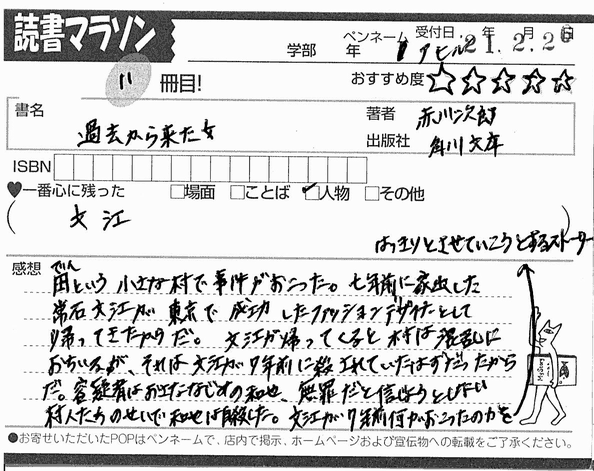 読書マラソン
学部 年 ペンネーム アヒル
受付日 21年2月2日
11 冊目!
おすすめ度 ☆☆☆☆☆
書名 過去から来た女
著者 赤川次郎
出版社 角川文庫
ISBN
♥一番心に残った □場面 □ことば ☑人物 □その他
( 文江 )
感想
田という小さな村で事件がおこった。七年前に家出した
でん
常石文江が東京で成功したファッションデザイナーとして
帰ってきたからだ。文江が帰ってくると村は混乱に
おちいるが、それは文江が7年前に殺されていたはずだったから
だ。容疑者はおさななじみの和也、無罪だと信じようとしない
村人たちのせいで和也は自殺した。文江が7年前何がおこったのかを
はっきりとさせていこうとするストーリー
●お寄せいただいたPOPはペンネームで、店内で掲示、ホームページおよび宣伝物への転載をご了承ください。